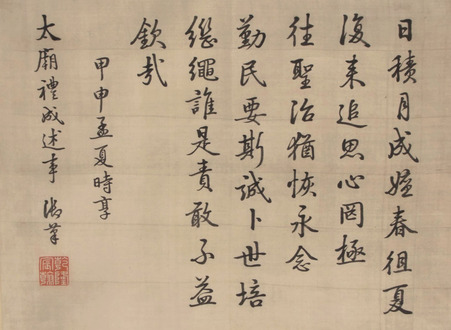 日積月成嬗春徂夏
復来追思心罔極
往聖治猶恢永念
勤民要斯誠卜世培
继繩誰是責敢不益
欽哉
甲申孟夏時享
太廟禮成述事 御筆